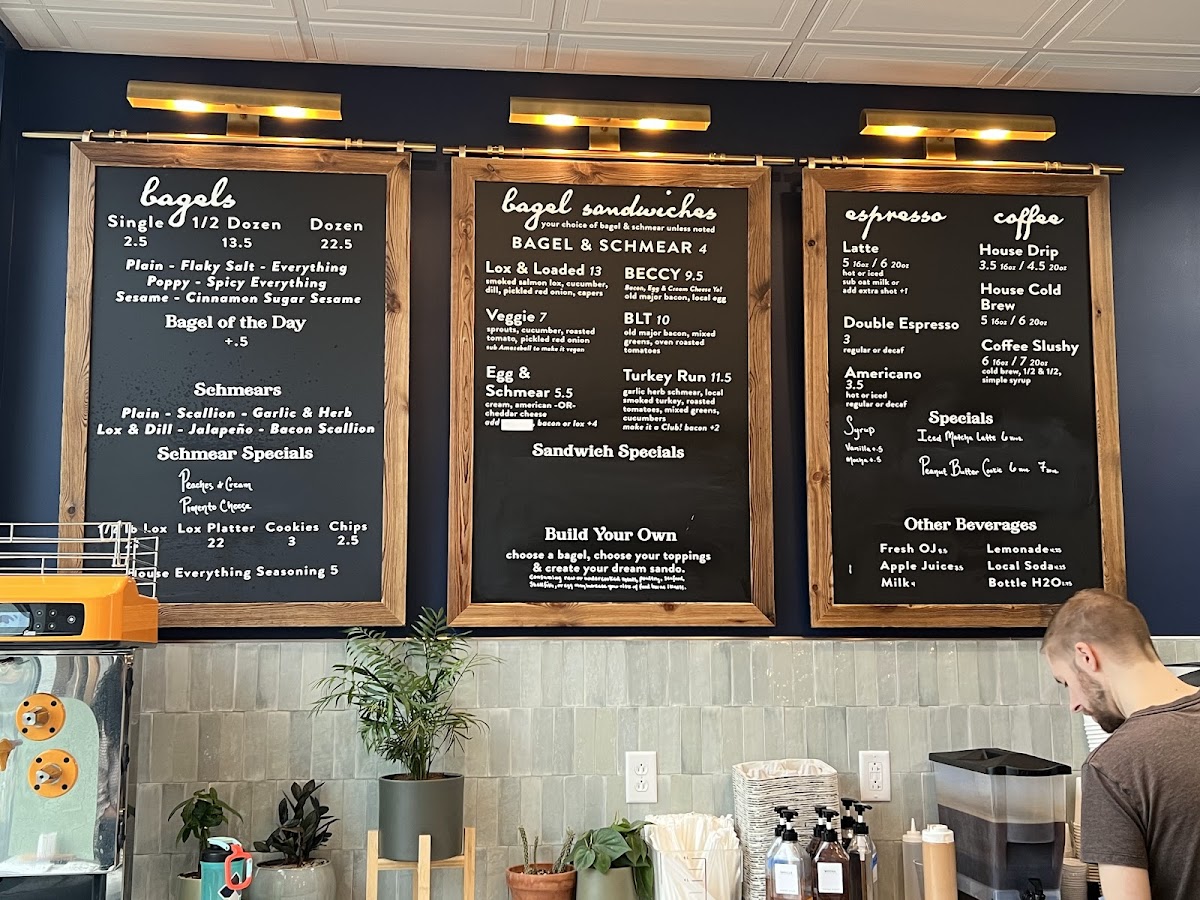 bagels
Single 1/2 Dozen Dozen
2.5 13.5 22.5
Plain - Flaky Salt - Everything
Poppy - Spicy Everything
Sesame - Cinnamon Sugar Sesame
Bagel of the Day
+.5
Schmears
Plain - Scallion - Garlic & Herb
Lox & Dill - Jalapeño - Bacon Scallion
Schmear Specials
Peaches & Cream
Pimento Cheese
1/2 lb Lox Lox Platter Cookies Chips
22 3 2.5
House Everything Seasoning 5
bagel sandwiches
your choice of bagel & schmear unless noted
BAGEL & SCHMEAR 4
Lox & Loaded 13
smoked salmon lox, cucumber,
dill, pickled red onion, capers
Veggie 7
sprouts, cucumber, roasted
tomato, pickled red onion
sub Amazeball to make it vegan
Egg &
Schmear 5.5
cream, american -OR-
cheddar cheese
add , bacon or lox +4
BECCY 9.5
Bacon, Egg & Cream Cheese Yo!
old major bacon, local egg
BLT 10
old major bacon, mixed
greens, oven roasted
tomatoes
Turkey Run 11.5
garlic herb schmear, local
smoked turkey, roasted
tomatoes, mixed greens,
cucumbers
make it a Club! bacon +2
Sandwich Specials
Build Your Own
choose a bagel, choose your toppings
& create your dream sando.
Consuming raw or undercooked meats, poultry, seafood,
shellfish, or eggs may increase your risk of food borne illness.
espresso
Latte
5 16oz / 6 20oz
hot or iced
sub oat milk or
add extra shot +1
Double Espresso
3
regular or decaf
Americano
3.5
hot or iced
regular or decaf
Syrup
Vanilla +.5
Mocha +.5
coffee
House Drip
3.5 16oz / 4.5 20oz
House Cold
Brew
5 16oz / 6 20oz
Coffee Slushy
6 16oz / 7 20oz
cold brew, 1/2 & 1/2,
simple syrup
Specials
Iced Matcha Latte 6
Peanut Butter 6 7
Other Beverages
Fresh OJ Lemonade
Apple Juice Local Soda
Milk 4 Bottle H2O